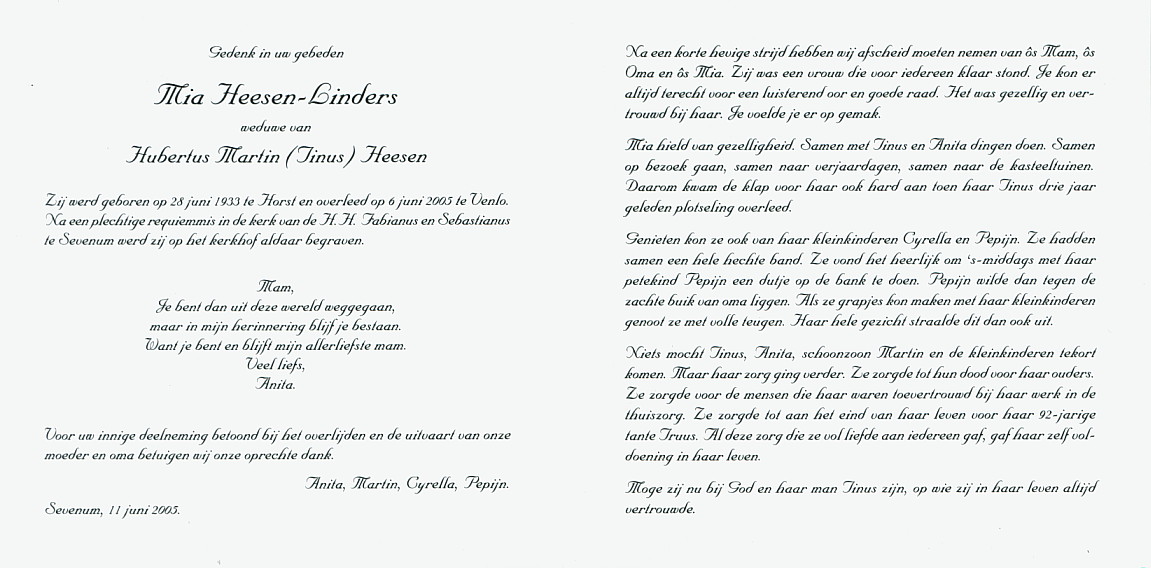 Gedenk in uw gebeden
Mia Heesen-Linders
weduwe van
Hubertus Martin (Tinus) Heesen
Zij werd geboren op 28 juni 1933 te Horst en overleed op 6 juni 2005 te Venlo.
Na een plechtige requiemmis in de kerk van de H.H. Fabianus en Sebastianus
te Sevenum werd zij op het kerkhof aldaar begraven.
Mam,
Je bent dan uit deze wereld weggegaan,
maar in mijn herinnering blijf je bestaan.
Want je bent en blijft mijn allerliefste mam.
Veel liefs,
Anita.
Voor uw innige deelneming betoond bij het overlijden en de uitvaart van onze
moeder en oma betuigen wij onze oprechte dank.
Anita, Martin, Cyrella, Pepijn.
Sevenum, 11 juni 2005.
Na een korte hevige strijd hebben wij afscheid moeten nemen van ôs Mam, ôs
Oma en ôs Mia. Zij was een vrouw die voor iedereen klaar stond. Je kon er
altijd terecht voor een luisterend oor en goede raad. Het was gezellig en ver-
trouwd bij haar. Je voelde je er op gemak.
Mia hield van gezelligheid. Samen met Tinus en Anita dingen doen. Samen
op bezoek gaan, samen naar verjaardagen, samen naar de kasteeltuinen.
Daarom kwam de klap voor haar ook hard aan toen haar Tinus drie jaar
geleden plotseling overleed.
Genieten kon ze ook van haar kleinkinderen Cyrella en Pepijn. Ze hadden
samen een hele hechte band. Ze vond het heerlijk om 's-middags met haar
petekind Pepijn een dutje op de bank te doen. Pepijn wilde dan tegen de
zachte buik van oma liggen. Als ze grapjes kon maken met haar kleinkinderen
genoot ze met volle teugen. Haar hele gezicht straalde dit dan ook uit.
Niets mocht Tinus, Anita, schoonzoon Martin en de kleinkinderen tekort
komen. Maar haar zorg ging verder. Ze zorgde tot hun dood voor haar ouders.
Ze zorgde voor de mensen die haar waren toevertrouwd bij haar werk in de
thuiszorg. Ze zorgde tot aan het eind van haar leven voor haar 92-jarige
tante Truus. Al deze zorg die ze vol liefde aan iedereen gaf, gaf haar zelf vol-
doening in haar leven.
Moge zij nu bij God en haar man Tinus zijn, op wie zij in haar leven altijd
vertrouwde.